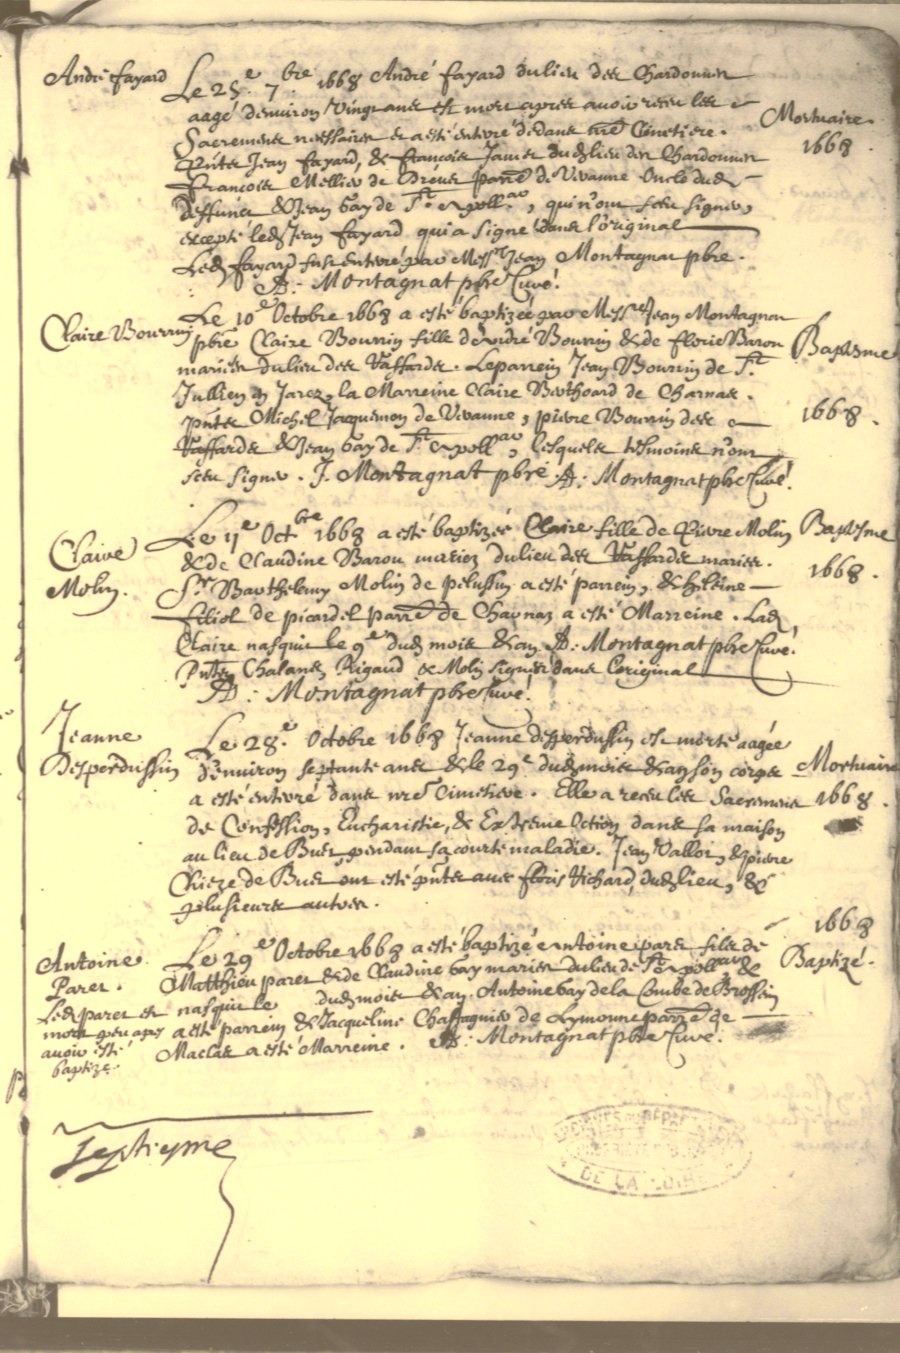 André fayard
Le 25.e 7.bre 1668 André fayard du lieu des Chardonner
aagé d'environ Vingt ans est mort apres avoir receu les
Sacremens necessaires et a esté enterré dedans nre Cimetiere.
Mortuaire
1668.
Pntes Jean fayard, & francois Janier dudz lieu des Chardonner
francois Mellier de parre de Veranne Oncle dud
deffunct & Jean Gay de St Apollnar, qui n'ont sceu signer,
excepté ledz Jean fayard qui a signé dans l'original
Ledz fayard fust enterré par Messre Jean Montagnat pbre.
A: Montagnat pbre Curé.
Claire Bourrin
Le 10e Octobre 1668 a esté baptizée par Messre Jean Montagnat
pbre Claire Bourrin fille d'André Bourrin & de florie Baron
mariés du lieu des Vaffardes. Le parrein Jean Bourrin de St
Jullien en Jarez, la Marreine Claire Berthoard de Charnas.
Baptesme
1668.
pntes Michel Jaquemon de Veranne, pierre Bourrin des
Vaffardes & Jean Gay de St Apollnar, lesquels tesmoins n'ont
sceu signer. J. Montagnat pbre A: Montagnat pbre Curé.
Claire
Molin.
Le 11e Octbre 1668 a esté baptizée Claire fille de Pierre Molin
& de Claudine Baron mariez du lieu des Vaffardes mariés.
Baptesme
1668.
Sr Barthelemy Molin de pelussin a esté parrein, & heleine
filiol de picardel parre de Charnas a esté Marreine. Ladz
Claire nasquit le 9e dudz mois & an A: Montagnat pbre Curé.
Pntes Chalands, Rigaud & Molin signés dans l'original
A: Montagnat pbre Curé.
Jeanne
Desperdussin
Le 28.e Octobre 1668 Jeanne desperdussin est morte aagée
d'environ septante ans & le 29e dudz mois & an son corps
a esté enterré dans nre Cimetiere. Elle a receu les Sacremens
Mortuaire
1668.
de Confession, Eucharistie, & Extreme Onction dans sa maison
au lieu de Buer pendant sa courte maladie. Jean Valloz, & pierre
Chieze de Buer ont esté pntes avec floris Richard dudz lieu, &
plusieurs autres.
Antoine
Paret.
Ledz paret est
mort peu apres
avoir esté
baptizé.
Le 29e Octobre 1668 a esté baptizé Antoine paret fils de
Matthieu paret & de Claudine Gay mariés du lieu de St Apollnar, &
nasquit le dudz mois & an. Antoine Gay de la Combe de Brossin
a esté parrein & Jacqueline Chaffagnier de Lymonne parre de
Maclas a esté Marreine. A: Montagnat pbre Curé.
1668
Baptizé.
Septieyme
ARCHIVES DU DEPARTEMENT
DE LA LOIRE